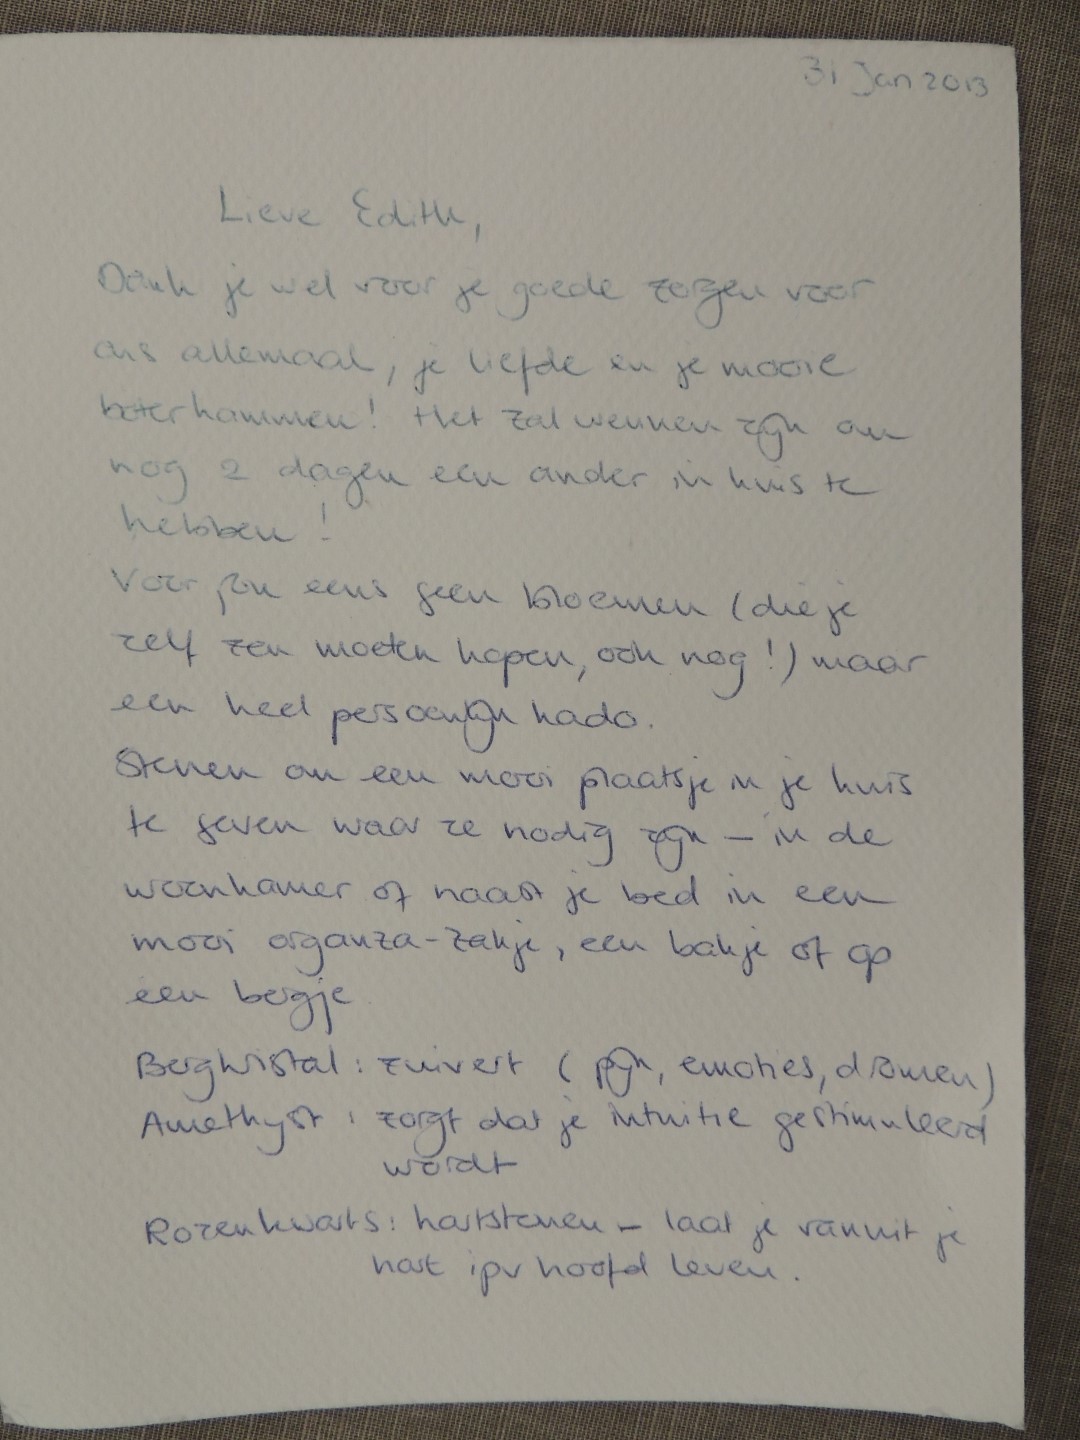 31 Jan 2013
Lieve Edith,
Dank je wel voor je goede zorgen voor
ons allemaal, je liefde en je mooie
boterhammen! Het zal wennen zijn om
nog 2 dagen een ander in huis te
hebben!
Voor jou eens geen bloemen (die je
zelf zou moeten kopen, ook nog!) maar
een heel persoonlijk kado.
Stenen om een mooi plaatsje in je huis
te geven waar ze nodig zijn – in de
woonkamer of naast je bed in een
mooi organza-zakje, een bakje of op
een bergje.
Bergkristal: zuivert (pijn, emoties, dromen)
Amethyst: zorgt dat je intuitie gestimuleerd
wordt
Rozenkwarts: hartstenen – laat je vanuit je
hart ipv hoofd leven.